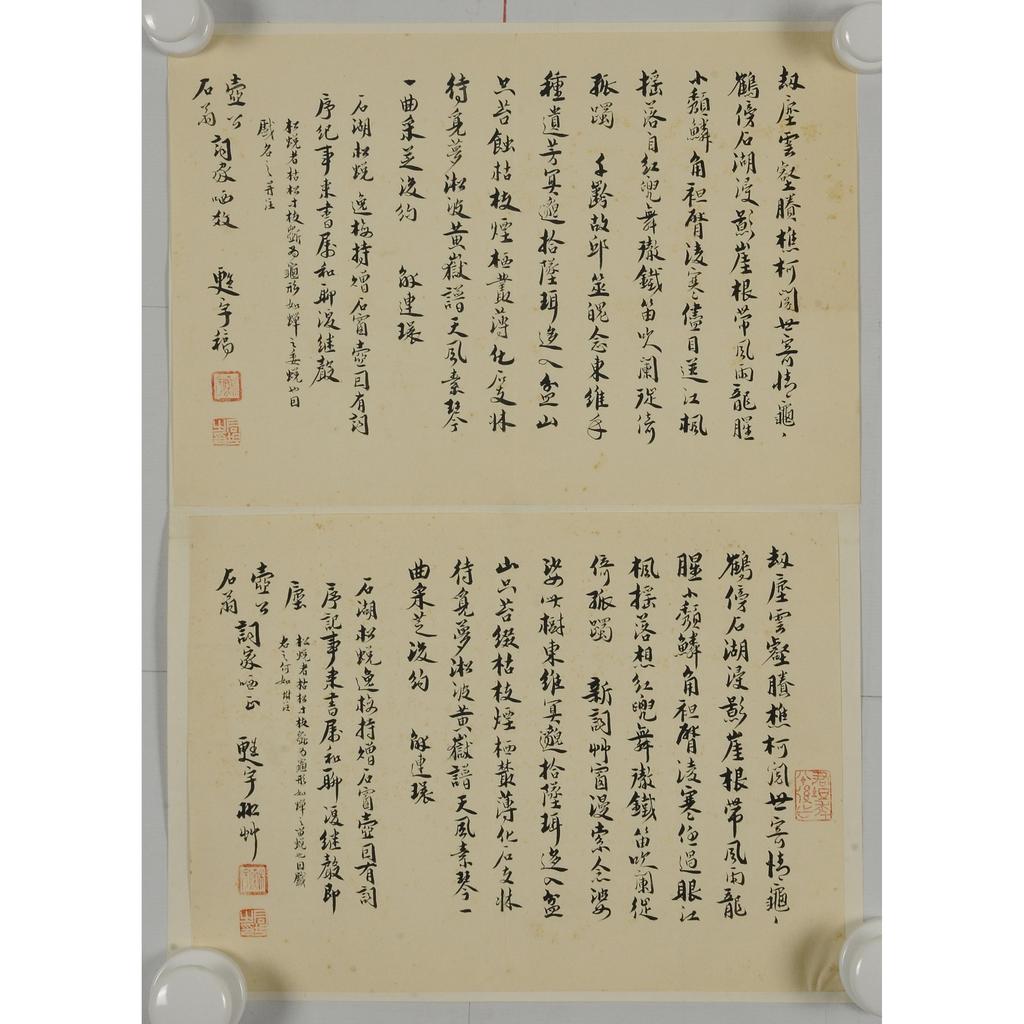 劫塵雲壑賸樵柯閱世寄情龜、
鶴傍石湖浸影崖根帶風雨龍腥
小顙鱗角袒臂淩寒儘目送江楓
搖落自紅兜舞璈鐵笛吹闌從倚
孤躅 千齡故邱莁魂念東維手
種遺芳冥遊拾墜珥迻入盆山
只苔蝕枯枝煙栖叢薄化石支牀
待覓夢淞波黃嶽譜天風素琴
一曲采芝後約 解連環
石湖松蛻逸梅持贈石窗壺司有詞
序紀事來書屬和聊復繼聲
松蛻者枯松寸枝 為龜形如蟬之委蛻也因
戲名之并注
壺公
石翁 詞家哂政 甦宇稿
劫塵雲壑賸樵柯閱世寄情龜、
鶴傍石湖浸影崖根帶風雨龍
腥小顙鱗角袒臂淩寒任過眼江
楓搖落想紅兜舞璈鐵笛吹闌從
倚孤躅 新詞艸窗漫索念婆
娑此樹東維冥遊拾墜珥迻入盆
山只苔綴枯枝煙栖叢薄化石支牀
待覓夢淞波黃嶽譜天風素琴一
曲采芝後約 解連環
石湖松蛻逸梅持贈石窗壺司有詞
序記事來書屬和聊復繼聲即
塵
松蛻者枯松寸枝 為龜形如蟬之留蛻也因戲
名之何如附注
壺公
石翁 詞家哂正 甦宇 艸